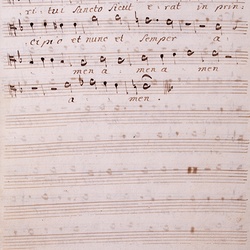 ri, tui Sancto Sicut erat in prin
cipio et nunc et Semper a
men a men a men
a men.